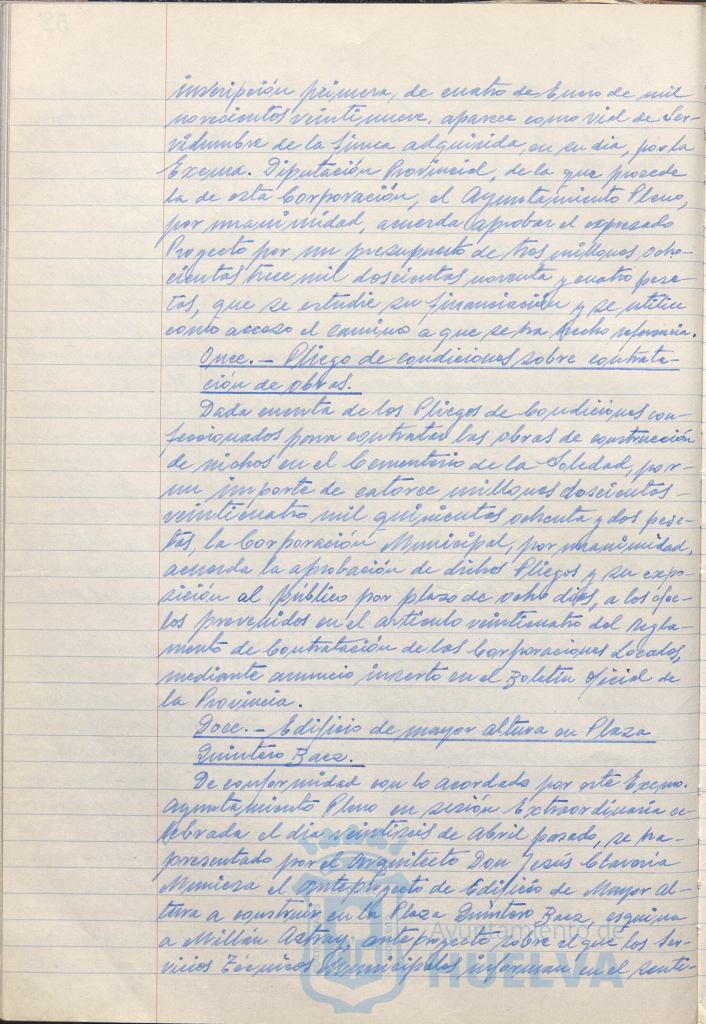 inscripción primera, de cuatro de Enero de mil
novecientos veintinueve, aparece como vial de Ser-
vidumbre de la finca adquirida, en su dia, por la
Excma. Diputación Provincial, de la que procede
la de esta Corporación, el Ayuntamiento Pleno,
por unanimidad, acuerda aprobar el expresado
Proyecto por un presupuesto de tres millones ocho-
cientas trece mil doscientas noventa y cuatro pese-
tas, que se estudie su financiación y se utilice
como acceso el camino a que se ha hecho referencia.
Once.- Pliego de condiciones sobre contrata-
ción de obras.
Dada cuenta de los Pliegos de Condiciones con-
feccionados para contratar las obras de construcción
de nichos en el Cementerio de la Soledad, por
un importe de catorce millones doscientas
veinticuatro mil quinientas ochenta y dos pese-
tas, la Corporación Municipal, por unanimidad,
acuerda la aprobación de dichos Pliegos y su expo-
sición al público por plazo de ocho dias, a los efec-
tos prevenidos en el artículo veinticuatro del Regla-
mento de Contratación de las Corporaciones Locales,
mediante anuncio inserto en el Boletin Oficial de
la Provincia.
Doce.- Edificio de mayor altura en Plaza
Quintero Baez.
De conformidad con lo acordado por este Excmo.
Ayuntamiento Pleno en sesión Extraordinaria ce-
lebrada el dia veintiseis de Abril pasado, se ha
presentado por el Arquitecto Don Jesús
el anteproyecto de Edificio de Mayor Al-
tura a construir en la Plaza Quintero Baez, esquina
a Millán Astray, anteproyecto sobre el que los Ser-
vicios Técnicos Municipales informan en el senti-
Ayuntamiento de
HUELVA